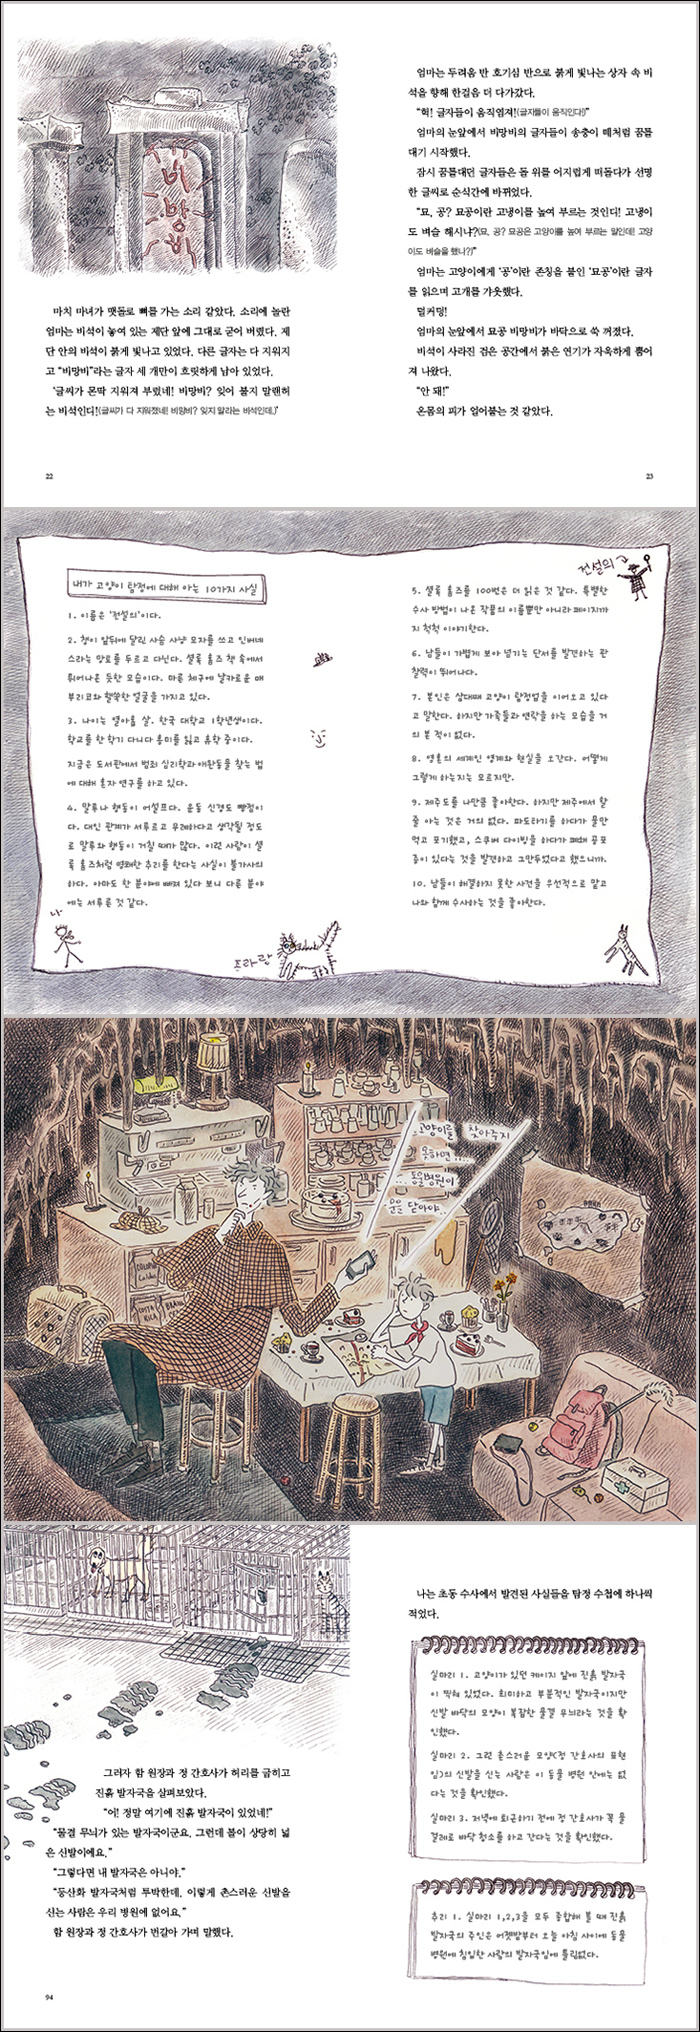 비
망
비
마치 마녀가 맷돌로 뼈를 가는 소리 같았다. 소리에 놀란
엄마는 비석이 놓여 있는 제단 앞에 그대로 굳어 버렸다. 제
단 안의 비석이 붉게 빛나고 있었다. 다른 글자는 다 지워지
고 “비망비”라는 글자 세 개만이 흐릿하게 남아 있었다.
‘글씨가 몬딱 지워져 부렀네! 비망비? 잊어 불지 말랜허
는 비석인디!(글씨가 다 지워졌네! 비망비? 잊지 말라는 비석인데.)’
22
엄마는 두려움 반 호기심 반으로 붉게 빛나는 상자 속 비
석을 향해 한걸음 더 다가갔다.
“헉! 글자들이 움직염져!(글자들이 움직인다!)”
엄마의 눈앞에서 비망비의 글자들이 송충이 떼처럼 꿈틀
대기 시작했다.
잠시 꿈틀대던 글자들은 돌 위를 어지럽게 떠돌다가 선명
한 글씨로 순식간에 바뀌었다.
“묘, 공? 묘공이란 고냉이를 높여 부르는 것인디! 고냉이
도 벼슬 해시냐?(묘, 공? 묘공은 고양이를 높여 부르는 말인데! 고양
이도 벼슬을 했나?)”
엄마는 고양이에게 ‘공’이란 존칭을 붙인 ‘묘공’이란 글자
를 읽으며 고개를 갸웃했다.
덜커덩!
엄마의 눈앞에서 묘공 비망비가 바닥으로 쑥 꺼졌다.
비석이 사라진 검은 공간에서 붉은 연기가 자욱하게 뿜어
져 나왔다.
“안 돼!”
온몸의 피가 얼어붙는 것 같았다.
23
내가 고양이 탐정에 대해 아는 10가지 사실
1. 이름은 ‘전설의’이다.
2. 챙이 앞뒤에 달린 사슴 사냥 모자를 쓰고 인버네
스라는 망토를 두르고 다닌다. 셜록 홈즈 책 속에서
튀어나온 듯한 모습이다. 마른 체구에 날카로운 매
부리코와 핼쑥한 얼굴을 가지고 있다.
3. 나이는 열아홉 살. 한국 대학교 1학년생이다.
학교를 한 학기 다니다 흥미를 잃고 휴학 중이다.
지금은 도서관에서 범죄 심리학과 애완동물 찾는 법
에 대해 혼자 연구를 하고 있다.
4. 말투나 행동이 어설프다. 운동 신경도 빵점이
다. 대인 관계가 서투르고 무례하다고 생각될 정도
로 말투와 행동이 거칠 때가 많다. 이런 사람이 셜
록 홈즈처럼 명쾌한 추리를 한다는 사실이 불가사의
하다. 아마도 한 분야에 빠져 있다 보니 다른 분야
에는 서투른 것 같다.
나
프라란
전설의
5. 셜록 홈즈를 100번은 더 읽은 것 같다. 특별한
수사 방법이 나온 작품의 이름뿐만 아니라 페이지까
지 척척 이야기한다.
6. 남들이 가볍게 보아 넘기는 단서를 발견하는 관
찰력이 뛰어나다.
7. 본인은 삼대째 고양이 탐정업을 이어오고 있다
고 말한다. 하지만 가족들과 연락을 하는 모습을 거
의 본 적이 없다.
8. 영혼의 세계인 영계와 현실을 오간다. 어떻게
그렇게 하는지는 모르지만.
9. 제주도를 나만큼 좋아한다. 하지만 제주에서 할
줄 아는 것은 거의 없다. 파도타기를 하다가 물만
먹고 포기했고, 스쿠버 다이빙을 하다가 폐쇄 공포
증이 있다는 것을 발견하고 그만두었다고 했으니까.
10. 남들이 해결하지 못한 사건을 우선적으로 맡고
나와 함께 수사하는 것을 좋아한다.
고양이를 찾아주지
못하면....
...동물병원이
문을 닫아야..
COSTA
RICA
그러자 함 원장과 정 간호사가 허리를 굽히고
진흙 발자국을 살펴보았다.
“어! 정말 여기에 진흙 발자국이 있었네!”
“물결 무늬가 있는 발자국이군요. 그런데 볼이 상당히 넓
은 신발이에요.”
“그렇다면 내 발자국은 아니야.”
“등산화 발자국처럼 투박한데. 이렇게 촌스러운 신발을
신는 사람은 우리 병원에 없어요.”
함 원장과 정 간호사가 번갈아 가며 말했다.
94
나는 초동 수사에서 발견된 사실들을 탐정 수첩에 하나씩
적었다.
실마리 1. 고양이가 있던 케이지 앞에 진흙 발자국
이 찍혀 있었다. 희미하고 부분적인 발자국이지만
신발 바닥의 모양이 복잡한 물결 무늬라는 것을 확
인했다.
실마리 2. 그런 촌스러운 모양(정 간호사의 표현
임)의 신발을 신는 사람은 이 동물 병원 안에는 없
다는 것을 확인했다.
실마리 3. 저녁에 퇴근하기 전에 정 간호사가 꼭 물
걸레로 바닥 청소를 하고 간다는 것을 확인했다.
추리 1. 실마리 1,2,3을 모두 종합해 볼 때 진흙
발자국의 주인은 어젯밤부터 오늘 아침 사이에 동물
병원에 침입한 사람의 발자국임에 틀림없다.